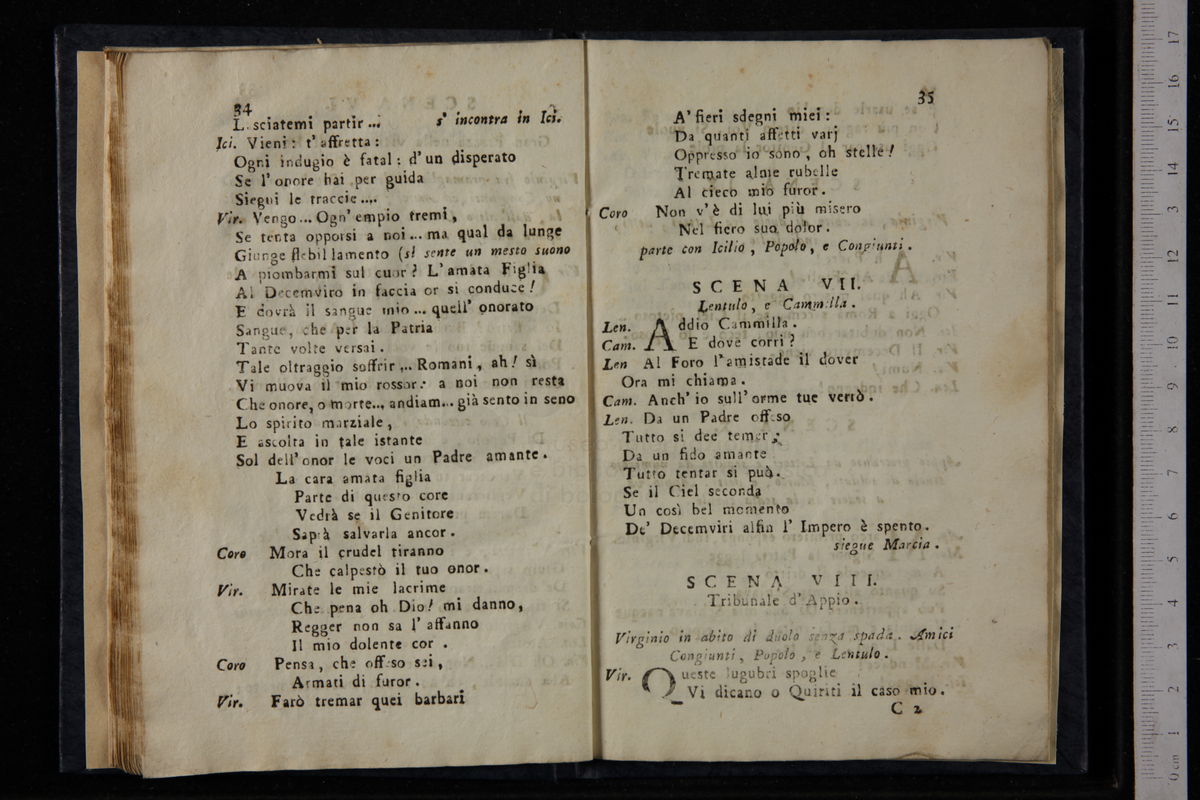 34
L sciatemi partir ... s' incontra in Ici.
Ici. Vieni: t' affretta:
Ogni indugio è fatal: d' un disperato
Se l' onore hai per guida
Siegui le traccie ....
Vir. Vengo... Ogn' empio tremi,
Se tenta opporsi a noi... ma qual da lunge
Giunge flebil lamento (si sente un mesto suono
A piombarmi sul cuor? L' amata Figlia
Al Decemviro in faccia or si conduce!
E dovrà il sangue mio ... quell' onorato
Sangue, che per la Patria
Tante volte versai.
Tale oltraggio soffrir ... Romani, ah! sì
Vi muova il mio rossor: a noi non resta
Che onore, o morte... andiam... già sento in seno
Lo spirito marziale,
E ascolta in tale istante
Sol dell' onor le voci un Padre amante.
La cara amata figlia
Parte di questo core
Vedrà se il Genitore
Saprà salvarla ancor.
Coro Mora il crudel tiranno
Che calpestò il tuo onor.
Vir. Mirate le mie lacrime
Che pena oh Dio! mi danno,
Regger non sa l' affanno
Il mio dolente cor.
Coro Pensa, che offeso sei,
Armati di furor.
Vir. Farò tremar quei barbari
35
A' fieri sdegni miei:
Da quanti affetti varj
Oppresso io sono, oh stelle!
Tremate alme rubelle
Al cieco mio furor.
Coro Non v' è di lui più misero
Nel fiero suo dolor.
parte con Icilio, Popolo, e Congiunti.
SCENA VII.
Lentulo, e Cammilla.
Len. Addio Cammilla.
Cam. E dove corri?
Len Al Foro l' amistade il dover
Ora mi chiama.
Cam. Anch' io sull' orme tue verrò.
Len. Da un Padre offeso
Tutto si dee temer;
Da un fido amante
Tutto tentar si può.
Se il Ciel seconda
Un così bel momento
De' Decemviri alfin l' Impero è spento.
siegue Marcia.
SCENA VIII.
Tribunale d' Appio.
Virginio in abito di duolo senza spada. Amici
Congiunti, Popolo, e Lentulo.
Vir. Queste lugubri spoglie
Vi dicano o Quiriti il caso mio.
C 2